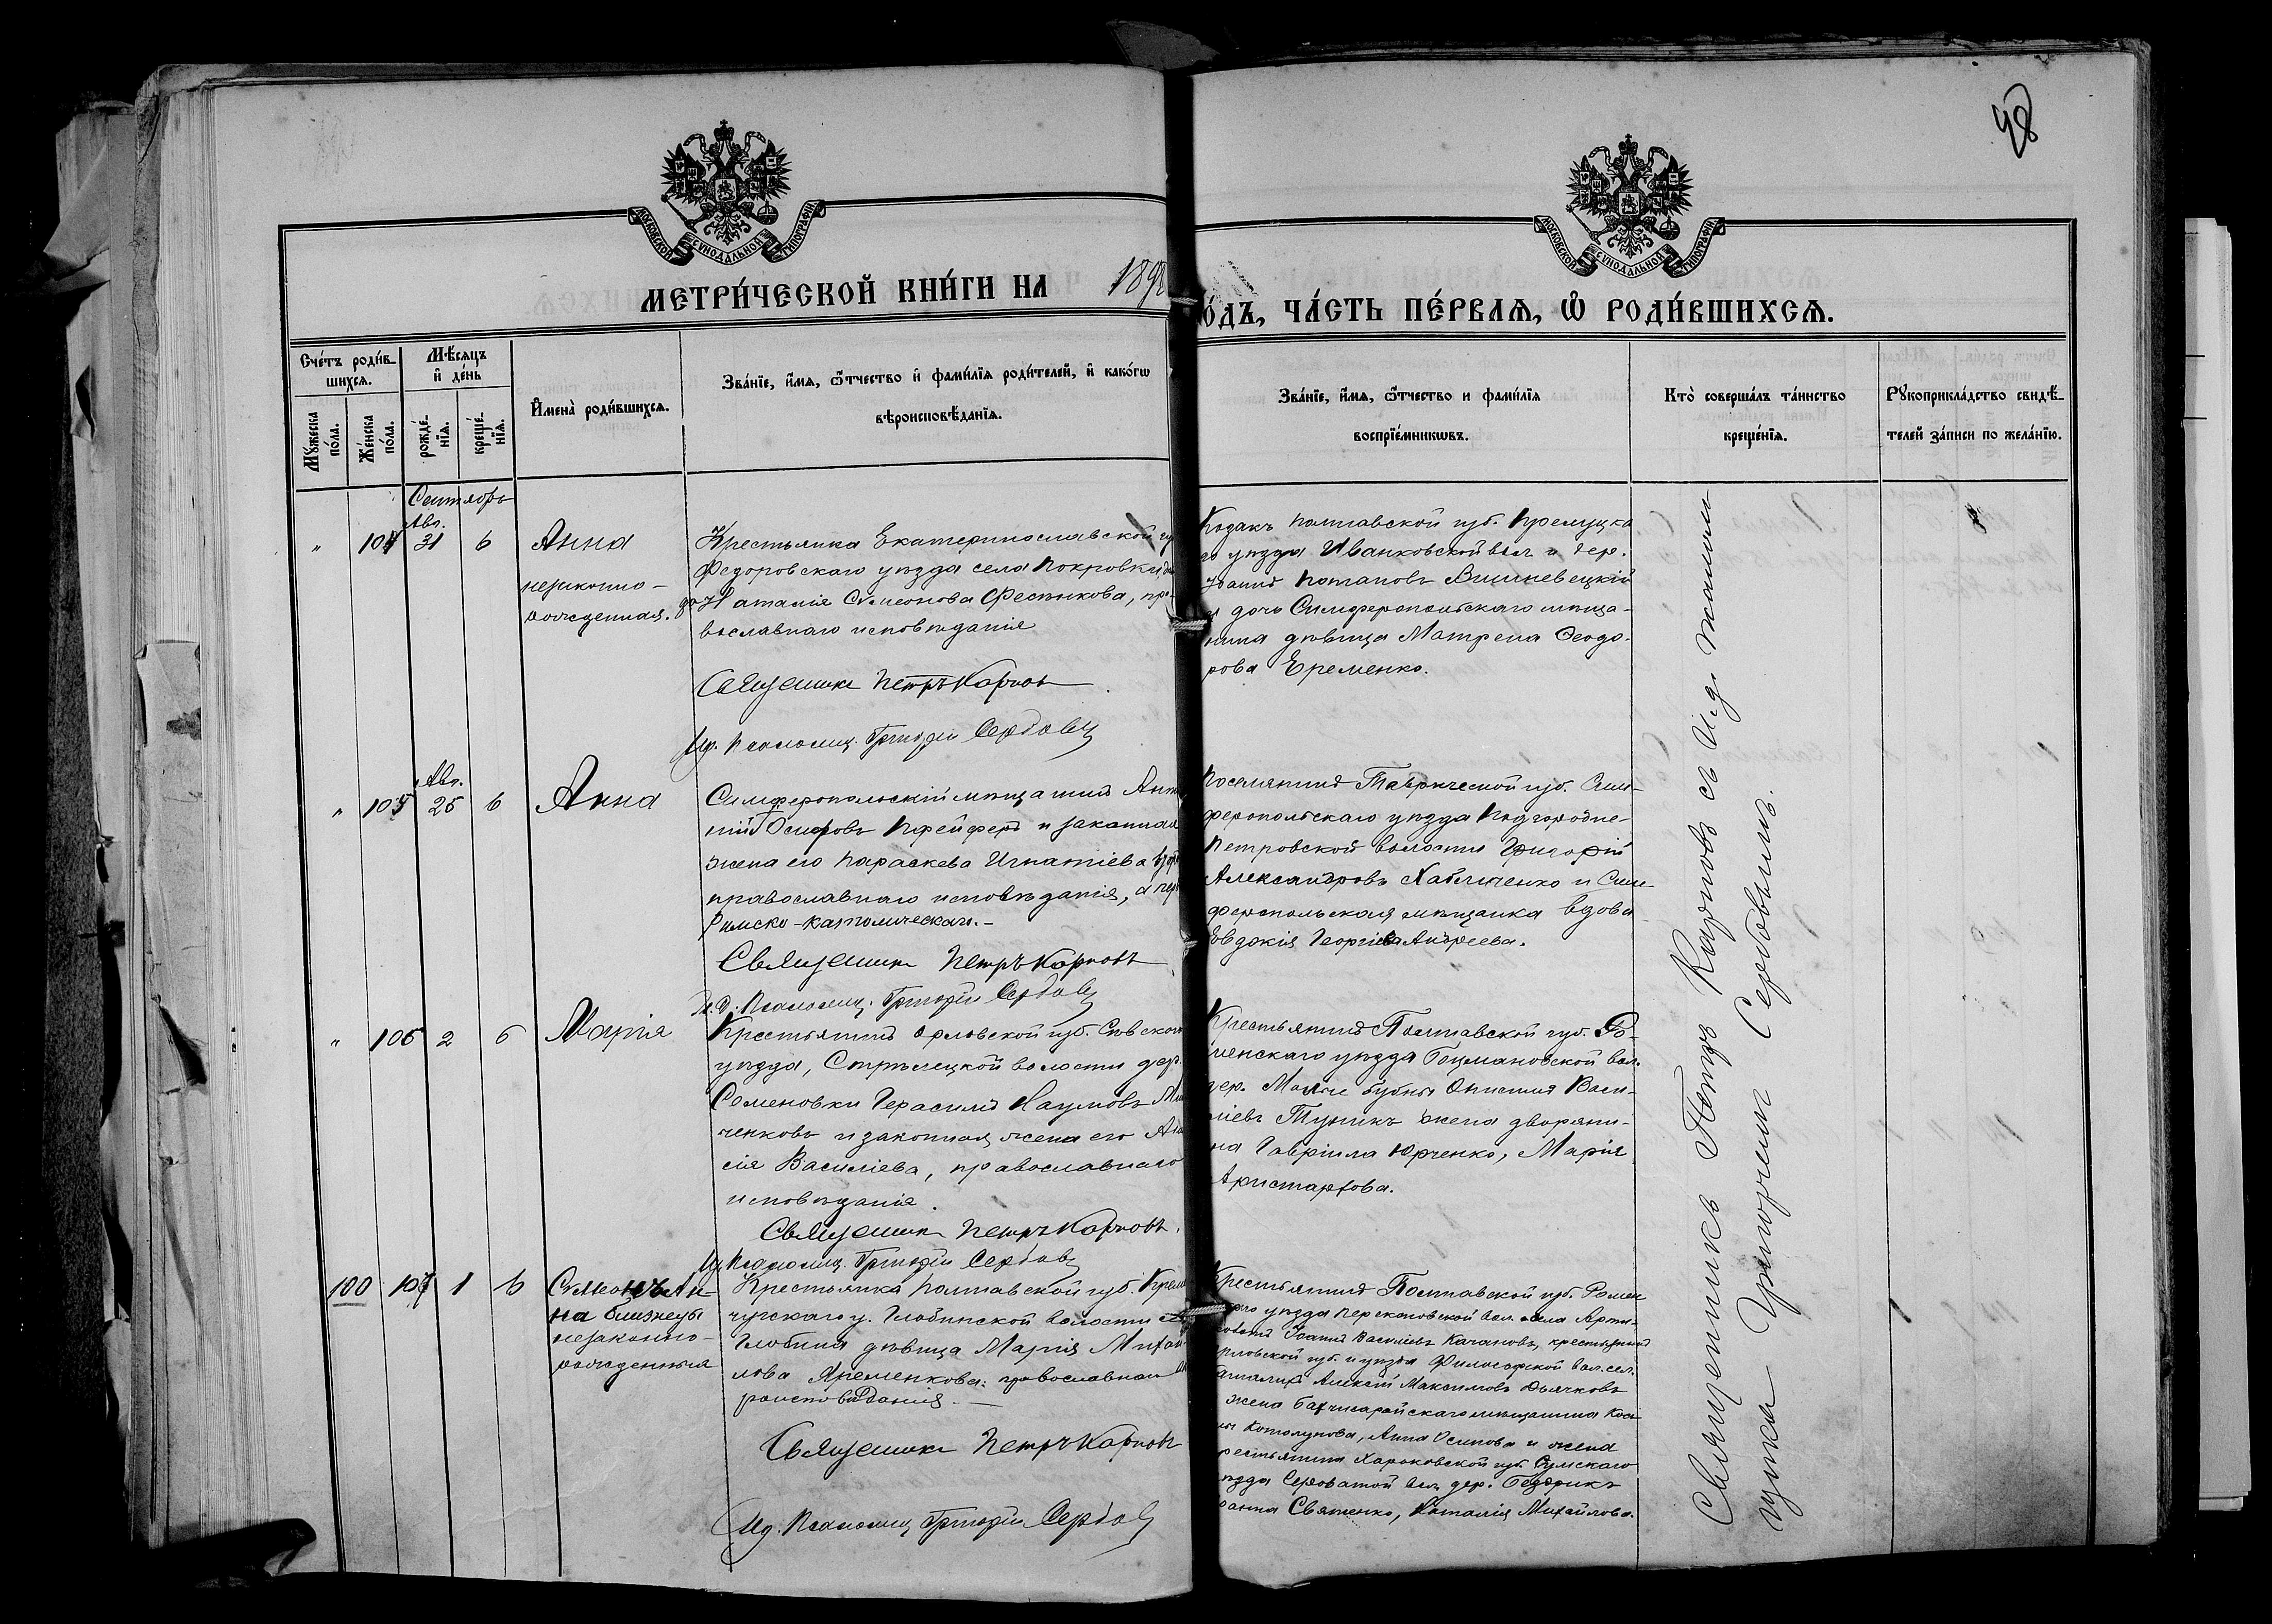 48
МОСКОВСКОЙ СѴНОДАЛЬНОЙ ТИПОГРАФІИ
МОСКОВСКОЙ СѴНОДАЛЬНОЙ ТИПОГРАФІИ
МЕТРИ́ЧЕСКОЙ КНИ́ГИ НА 189
О́ДЪ, ЧА́СТЬ ПЕ́РВАЯ, Ѽ РОДИ́ВШИХСѦ.
Сче́тъ роди́в-
шихсѧ.
Мꙋ́жеска по́ла.
Же́нска по́ла.
Мѣ́сѧцъ
и҆ де́нь
рожде́-
нїѧ.
креще́-
нїѧ.
И҆мена̀ роди́вшихсѧ.
Зва́нїе, и҆́мѧ, ѻ҆́тчество и҆ фами́лїѧ роди́телей, и҆ како́гѡ
вѣроисповѣ́данїѧ.
Зва́нїе, и҆́мѧ, ѻ҆́тчество и фами́лїѧ
воспрїе́мникѡвъ.
Кто̀ соверша́лъ та́инство
креще́нїѧ.
Рꙋкоприкла́дство свидѣ́-
телей за́писи по жела́нїю.
Сентябрь
" 104 Авг. 31 6 Анна
незаконно-
рожденная.
Крестьянка Екатеринославской гу
Федоровскаго уѣзда села Покровки,
Наталія Симеонова Феськова, пра-
вославнаго исповѣданія
Священникъ Петръ Карповъ
И.д. Псаломщ. Григорій Сербовъ
Козакъ Полтавской губ. Прелуцка
го уѣзда Иванковской вол. и дер.
Іоаннъ Потаповъ Вишневецкій
и дочь Симферопольскаго мѣща-
нина дѣвица Матрена Ѳеодо-
рова Еременко.
" 105 Авг. 25 6 Анна
Симферопольскій мѣщанинъ Анто
ній Осиповъ Пфейферъ и законная
жена его Параскева Игнатіева
православнаго исповѣданія, а пер
Римско-католическаго.-
Священникъ Петръ Карповъ
И.д. Псаломщ. Григорій Сербовъ
Поселянинъ Таврической губ. Сим-
феропольскаго уѣзда Подгородне-
Петровской волости Григорій
Александровъ Хабличенко и Сим-
феропольская мѣщанка вдова
Евдокія Георгіева Андреева.
" 106 2 6 Марія
Крестьянинъ Орловской губ. Сѣвскаго
уѣзда, Стрѣлецкой волости дер.
Семеновки Герасимъ Наумовъ Ми
ченковъ и законная жена его
сія Василіева, православнаго
исповѣданія.
Священникъ Петръ Карповъ.
И.д. Псаломщ. Григорій Сербовъ
Крестьянинъ Полтавской губ. Ро-
менскаго уѣзда Гоцмановской вол.
дер. Малые Бубны Онисимъ Васи-
ліевъ Туникъ жена дворяни-
на Гавріила Юрченко, Марія
Аристархова.
100 107 1 6 Симеонъ и Ан-
на близнецы
незаконно-
рожденные
Крестьянка Полтавской губ. Креме
чугскаго у. Глобинской волости
Глобина дѣвица Марія Михаи
лова Яременкова: православнаго
роисповѣданія. —
Священникъ Петръ Карповъ
И.д. Псаломщ. Григорій Сербовъ
Крестьянинъ Полтавской губ. Ромен
скаго уѣзда Перекоповской вол. села Арти-
Іоаннъ Василіевъ Качановъ, крестьянинъ
Орловской губ. и уѣзда Философской вол. сел.
Алексій Максимовъ Дьячковъ
жена Бахчисарайскаго мѣщанина Кось
мы Котолунова, Анна Осипова и жена
рестьянина Харьковской губ. Сумскаго
уѣзда Сероватой вол. дер. Бездрикъ
Святенко, Наталія Михайлова.
Священникъ Петръ Карповъ съ и.д. псалом-
щика Григоріемъ Сербовымъ.